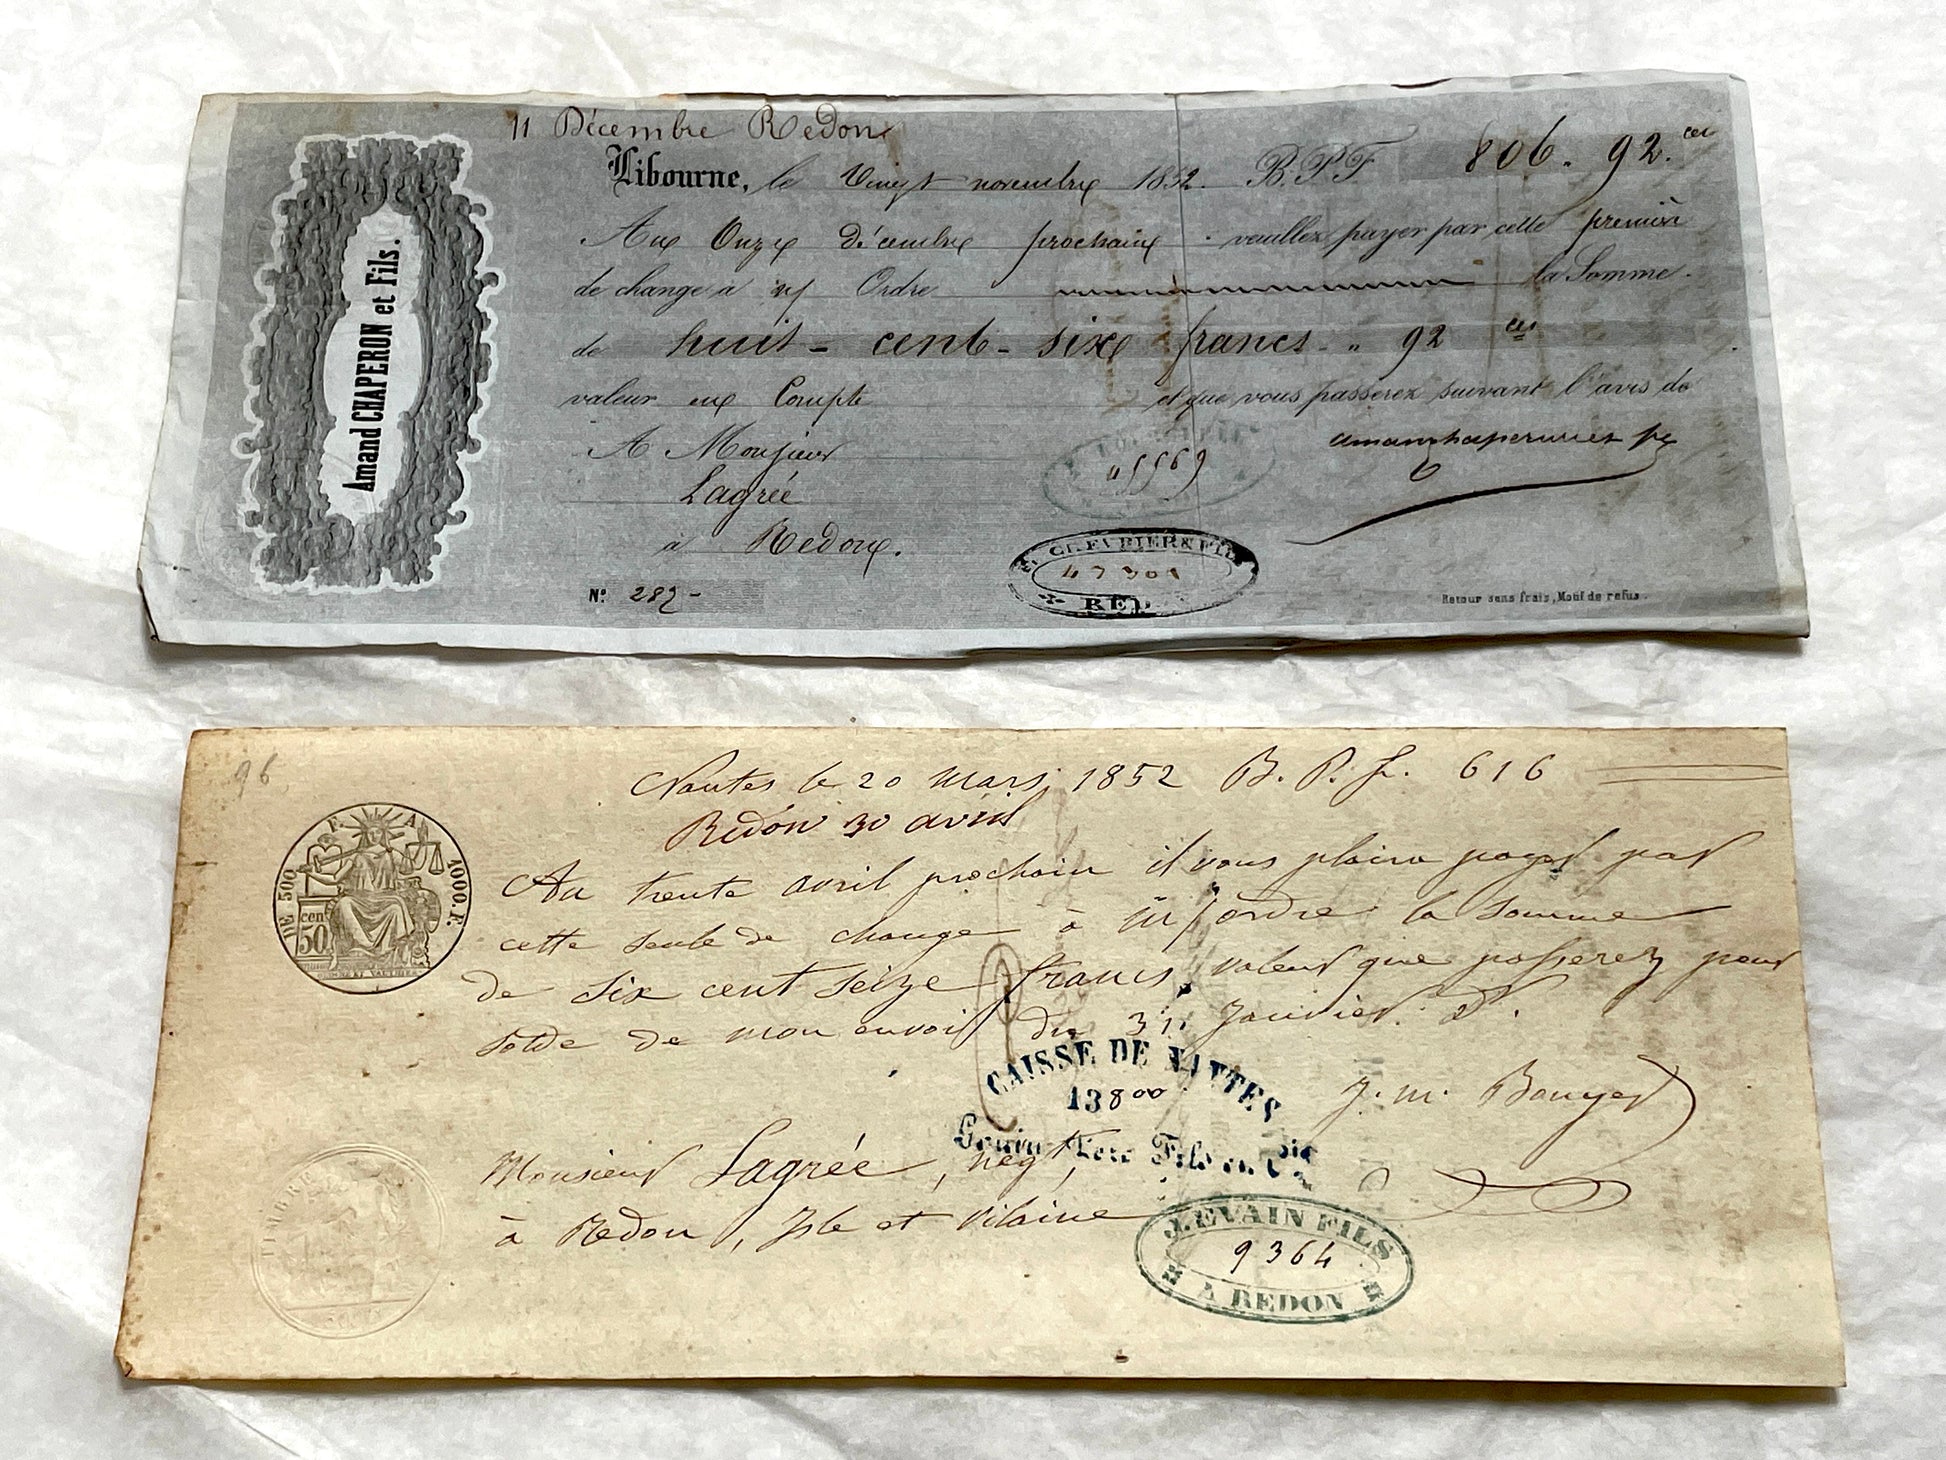 Amand CHAPERON et Fils.
11 Décembre Redon
Libourne, le Vingt novembre 1852. B.P.F 806. 92. ces
Au Onze Décembre prochain veuillez payer par cette première
de change à n/ Ordre la Somme
de huit - cent - six francs - " 92 ces
valeur en Compte et que vous passerez suivant l'avis de
A Monsieur
Lagrée
à Redon.
45569
47301
RED
N° 282 -
Retour sans frais, Motif de refus.
96
Nantes le 20 mars 1852 B. P. f. 616
Redon 30 avril
Au trente avril prochain il vous plaira payer par
cette seule de change à m/ ordre la somme
de six cent seize francs valeur que passerez pour
solde de mon envoi du 31 Janvier d.
J. M. Bouyer
DE 500 A 1000 F.
50 cen
CAISSE DE NANTES
13800
Fils et Cie
Monsieur Lagrée, négt,
à Redon, Isle et Vilaine
TIMBRE
J. EVAIN FILS
9364
A REDON